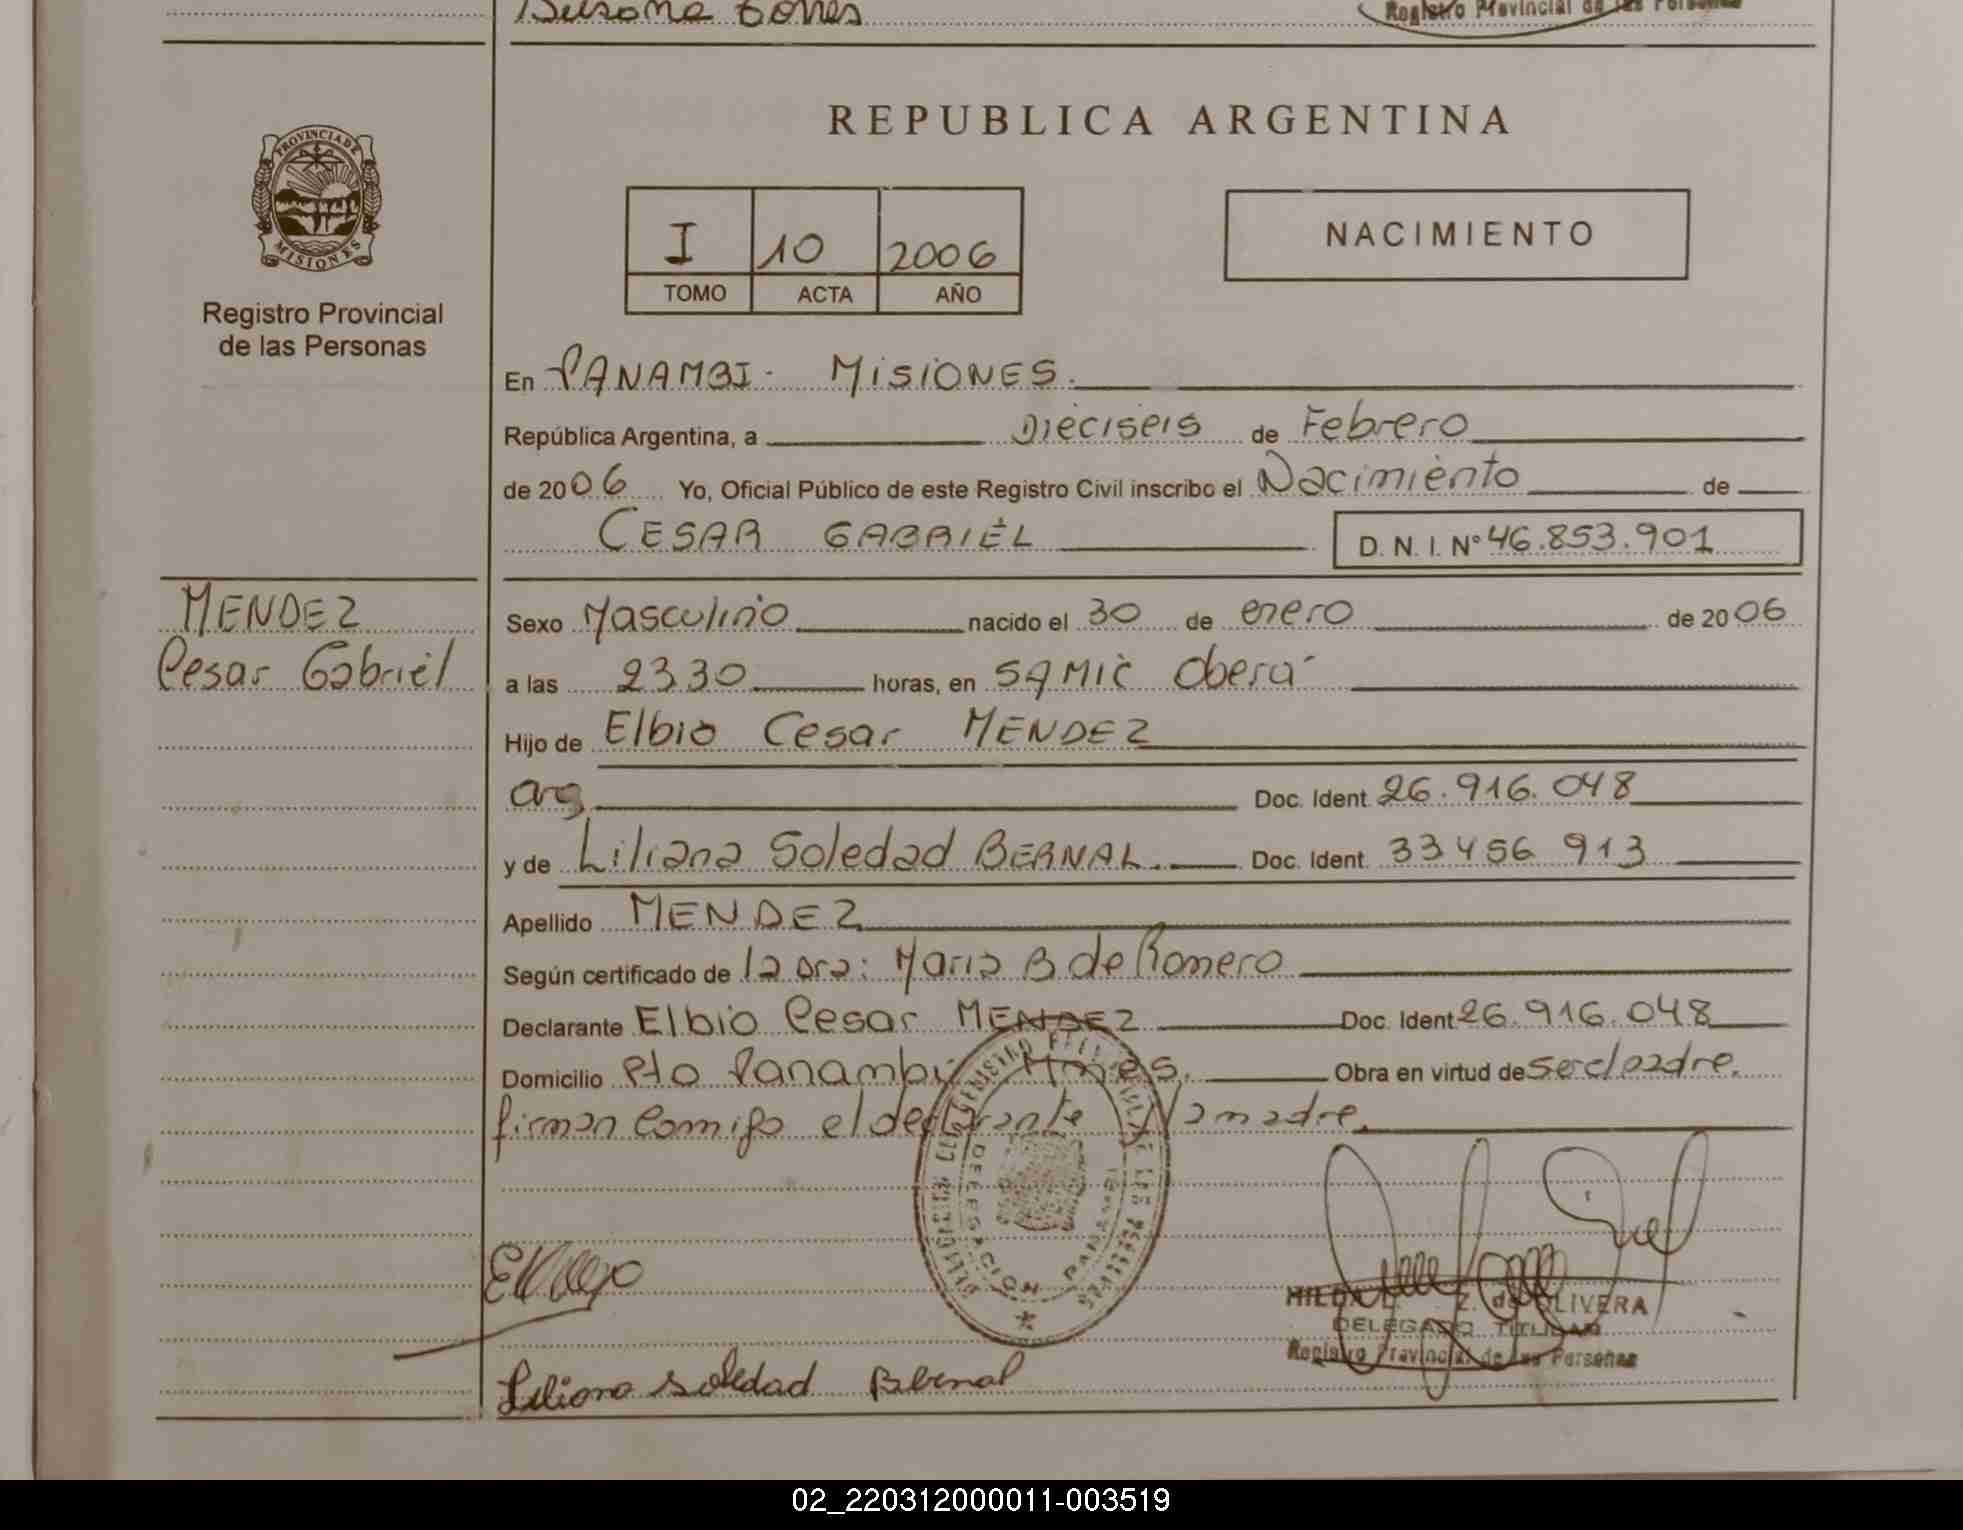 Torres
Registro Provincial de las Personas
REPUBLICA ARGENTINA
PROVINCIA DE
MISIONES
Registro Provincial
de las Personas
I 10 2006
TOMO ACTA AÑO
NACIMIENTO
En PANAMBI - MISIONES.
República Argentina, a Dieciseis de Febrero
de 2006 Yo, Oficial Público de este Registro Civil inscribo el Nacimiento de
CESAR GABRIEL D. N. I. Nº 46.853.901
MENDEZ
Cesar Gabriel
Sexo Masculino nacido el 30 de enero de 2006
a las 23 30 horas, en SAMIC Oberá
Hijo de Elbio Cesar MENDEZ
arg Doc. Ident. 26.916.048
y de Liliana Soledad BERNAL. Doc. Ident. 33 456 913
Apellido MENDEZ
Según certificado de la Dra: Maria B de Romero
Declarante Elbio Cesar MENDEZ Doc. Ident. 26.916.048
Domicilio Pto Panambi Mnes. Obra en virtud de ser el padre.
firman conmigo el declarante y la madre.
DELEGACION
PANAMBI
HILDA Z. de OLIVERA
DELEGADO TITULAR
Registro Provincial de las Personas
Liliana Soledad Bernal
02_220312000011-003519